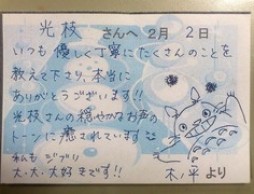 光枝 さんへ 2月 2日
いつも優しく丁寧にたくさんのことを
教えて下さり、本当に
ありがとうございます!!
光枝さんの穏やかなお声の
トーンに癒されています
私も ジブリ
大・大・大好きです!!
木ノ平 より